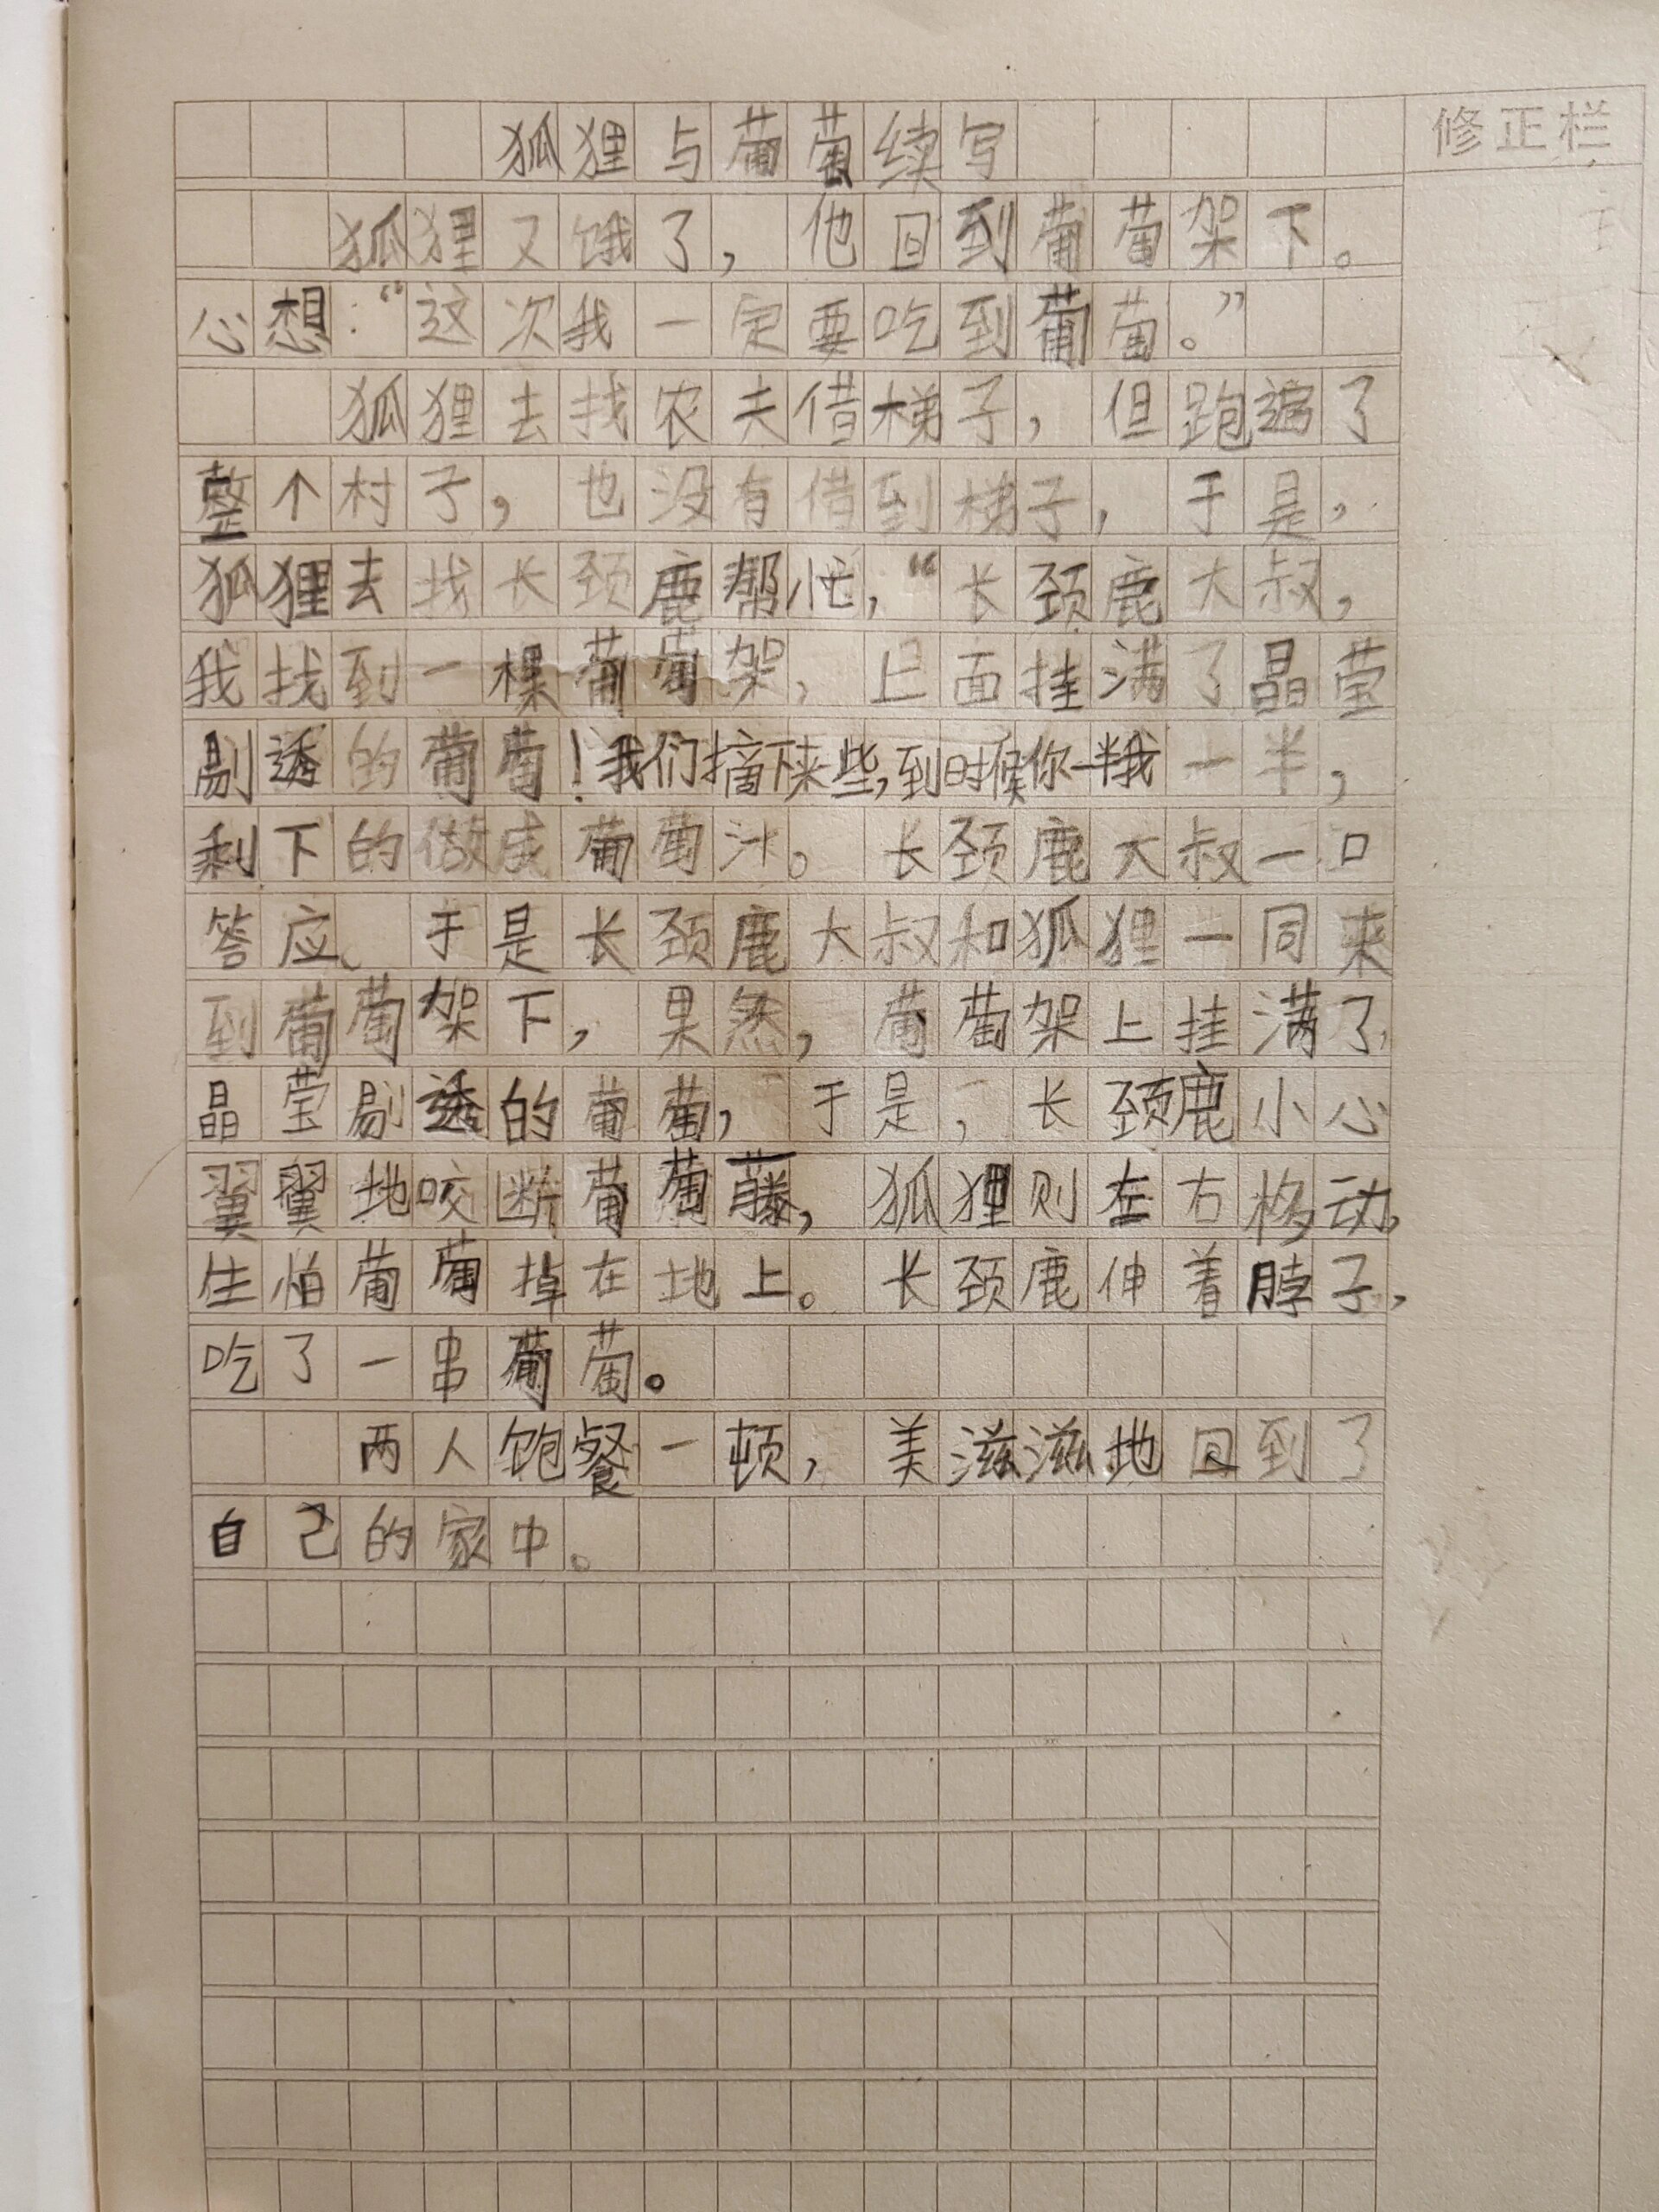 狐狸与葡萄续写
修正栏
狐狸又饿了，他回到葡萄架下。
心想：“这次我一定要吃到葡萄。”
狐狸去找农夫借梯子，但跑遍了
整个村子，也没有借到梯子，于是，
狐狸去找长颈鹿帮忙，“长颈鹿大叔，
我找到一棵葡萄架，上面挂满了晶莹
剔透的葡萄！我们摘下来些，到时候你一半我一半，
剩下的做成葡萄汁。长颈鹿大叔一口
答应。于是长颈鹿大叔和狐狸一同来
到葡萄架下，果然，葡萄架上挂满了
晶莹剔透的葡萄，于是，长颈鹿小心
翼翼地咬断葡萄藤，狐狸则左右移动，
生怕葡萄掉在地上。长颈鹿伸着脖子，
吃了一串葡萄。
两人饱餐一顿，美滋滋地回到了
自己的家中。